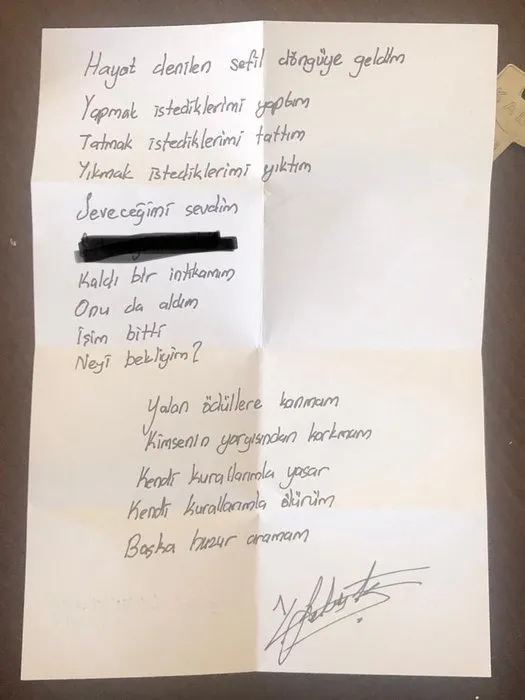 Hayat denilen sefil döngüye geldim
Yapmak istediklerimi yaptım
Tatmak istediklerimi tattım
Yıkmak istediklerimi yıktım
Seveceğimi sevdim
Kaldı bir intikamım
Onu da aldım
İşim bitti
Neyi bekliyim?
Yalan ödüllere kanmam
Kimsenin yargısından korkmam
Kendi kurallarımla yaşar
Kendi kurallarımla ölürüm
Başka huzur aramam